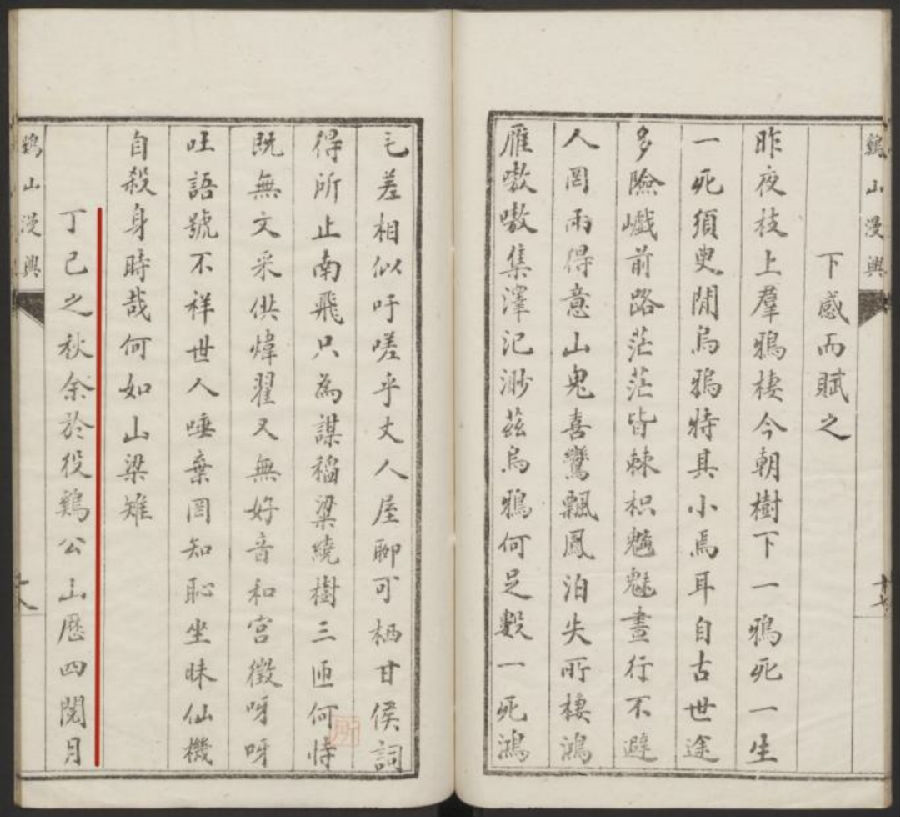 鷄山漫興
下感而賦之
昨夜枝上羣鴉棲今朝樹下一鴉死一生
一死須臾間烏鴉特其小焉耳自古世途
多險巇前路茫茫皆棘枳魑魅晝行不避
人罔兩得意山鬼喜鸞飄鳳泊失所棲鴻
雁嗷嗷集澤汜渺茲烏鴉何足數一死鴻
十七
毛差相似吁嗟乎丈人屋聊可栖甘侯詞
得所止南飛只為謀稻粱繞樹三匝何恃
既無文采供煒翟又無好音和宮徵呀呀
吐語號不祥世人唾棄罔知恥坐昧仙機
自殺身時哉何如山梁雉
丁巳之秋余於役鷄公山歷四閱月
鷄山漫興
十八